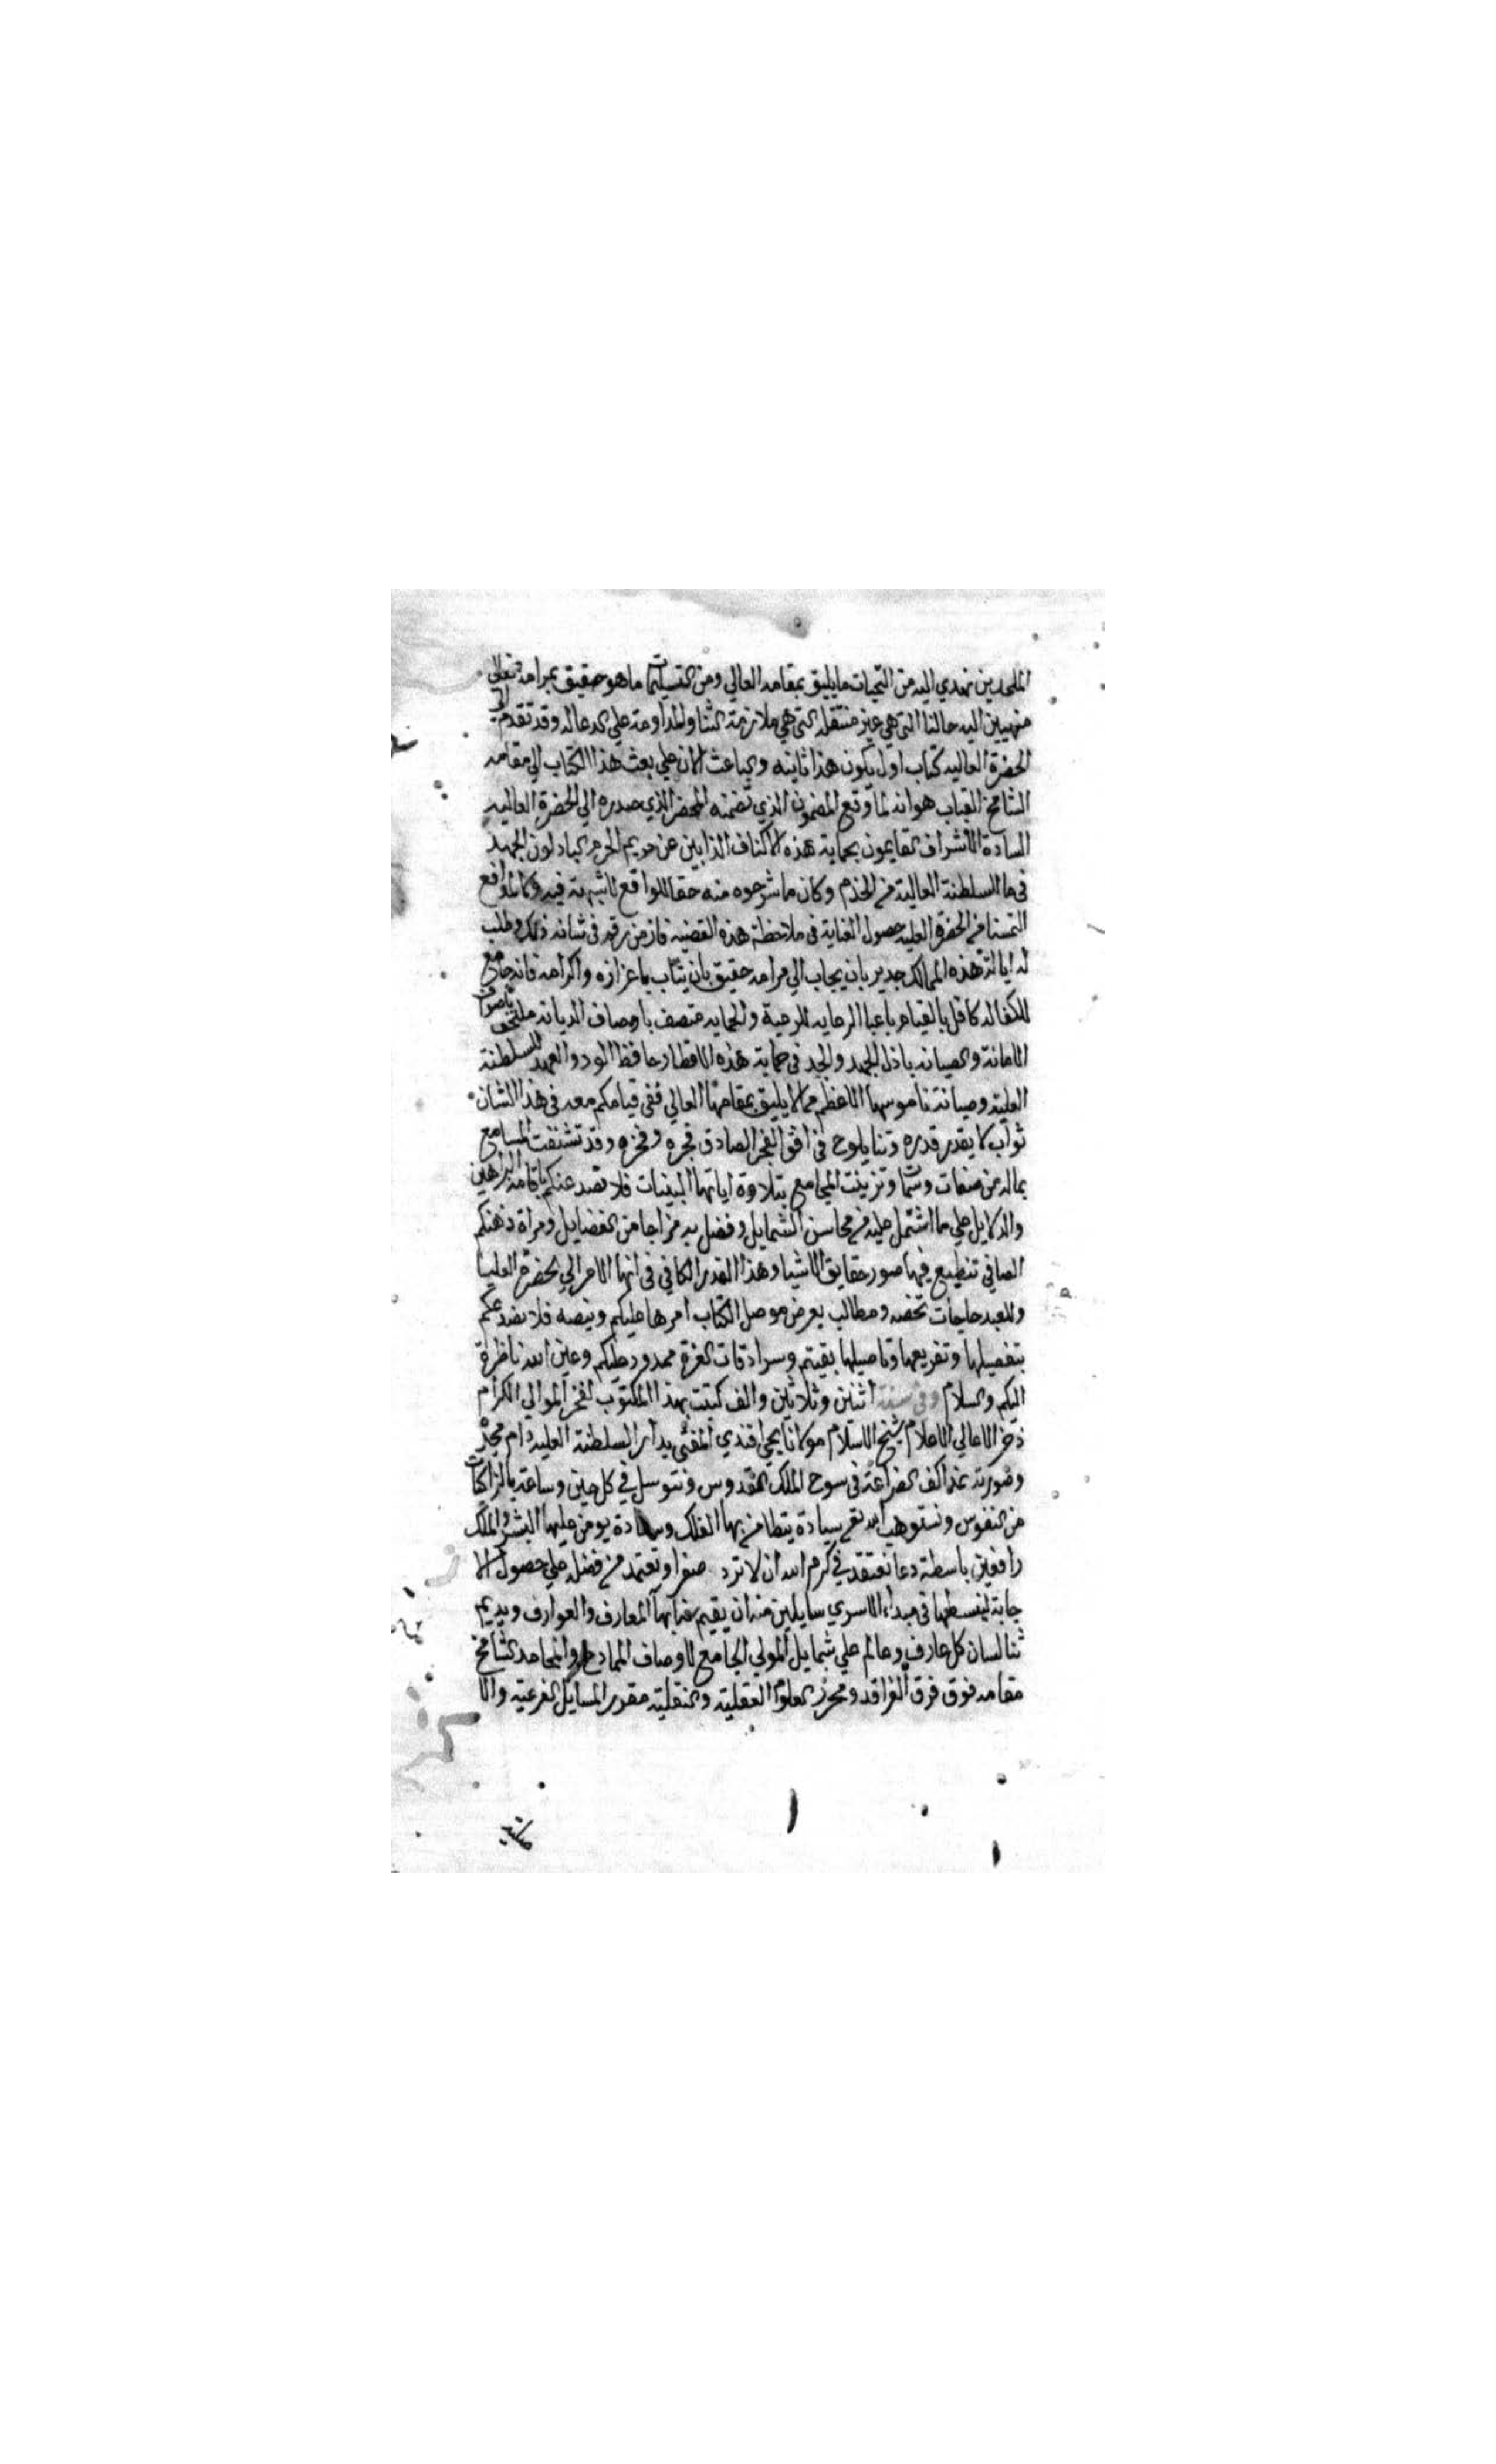 الملحدين نهدي اليه من التحيات ما يليق بمقامه العالي ومن التسليمات ما هو حقيق بمرامه تعالى
منهيين اليه حالنا التي هي غير منتقلة التي هي ملازمة الثنا والمداومة علي الدعاله وقد تقدم الي
الحضرة العاليه كتاب اول يكون هذا ثانيه والباعث الان علي بعث هذا الكتاب الي مقامه
الشامخ القباب هو انه لما وقع المضمون الذي تضمنه المحضر الذي صدره الي الحضرة العاليه
السادة الاشراف القايمون بحماية هذه الاكناف الذابين عن حريم الحرم الباذلون الجهد
في ما للسلطنة العالية من الخدم وكان ما شرحوه منه حقا للواقع لا شبهة فيه وكالدافع
التمسنا من الحضرة العليه حصول العناية في ملاحظة هذه القضيه فان من رقم في شانه ذلك وطلب
له ايالة هذه الممالك جدير بان يجاب الي مرامه حقيق بان يثاب باعزازه واكرامه فانه جامع
للكفاله كافل بالقيام باعبا الرعايه للرعية والحمايه متصف باوصاف الديانه ملتحف باصواف
الامانة والصيانه باذل الجهد والجد في حماية هذه الاقطار حافظ الود والعهد للسلطنة
العليه وصيانة ناموسها الاعظم مما لا يليق بمقامها العالي ففي قيامكم معه في هذا الشان
ثواب لا يقدر قدره وثنا يلوح في افق الفجر الصادق فجره وفخره وقد تشنفت المسامع
بماله من صفات وشما وتزينت المجامع بتلاوة اياتها البينات فلا نصدعنكم باقامة البراهين
والدلايل علي ما اشتمل عليه من محاسن الشمايل وفضل به مزاجا من الفضايل ومراة ذهنكم
الصافي تنطبع فيها صور حقايق الاشيا وهذا القدر الكافي في انها الامر الي الحضرة العليا
وللعبد حاجات تخصه ومطالب يعرض موصل الكتاب امرها عليكم وينصه فلا نصدعكم
بتفصيلها وتفريعها وتاصيلها بقيتم وسرادقات العزة ممدود عليكم وعين الله ناظرة
اليكم والسلام وفي سنة اثنتين وثلاثين والف كتبت بهذا المكتوب لفخر الموالي الكرام
ذخر الاعالي الاعلام شيخ الاسلام مولانا يحيى افندي المفتي بدار السلطنة العليه دام مجده
وصورته نمد اكف الضراعة في سوح الملك القدوس ونتوسل في كل حين وساعة بالزاكيات
من النفوس ونستوهب الله تعم سيادة يتطامن بها الفلك وسعادة يومن عليها البشر والملك
رافعين باسطة دعا نعتقد في كرم الله ان لا ترد صفرا ونعتمد من فضله علي حصول الا
جابة لينسطها في مبداء الاسري سايلين منه ان يقيم بها المعارف والعوارف ويديم
ثنا لسان كل عارف وعالم علي شمايل المولي الجامع لاوصاف الممادح والمحامد الشامخ
مقامه فوق فرق الفراقد ومحرز العلوم العقلية والنقلية مقرر المسايل الفرعية والا